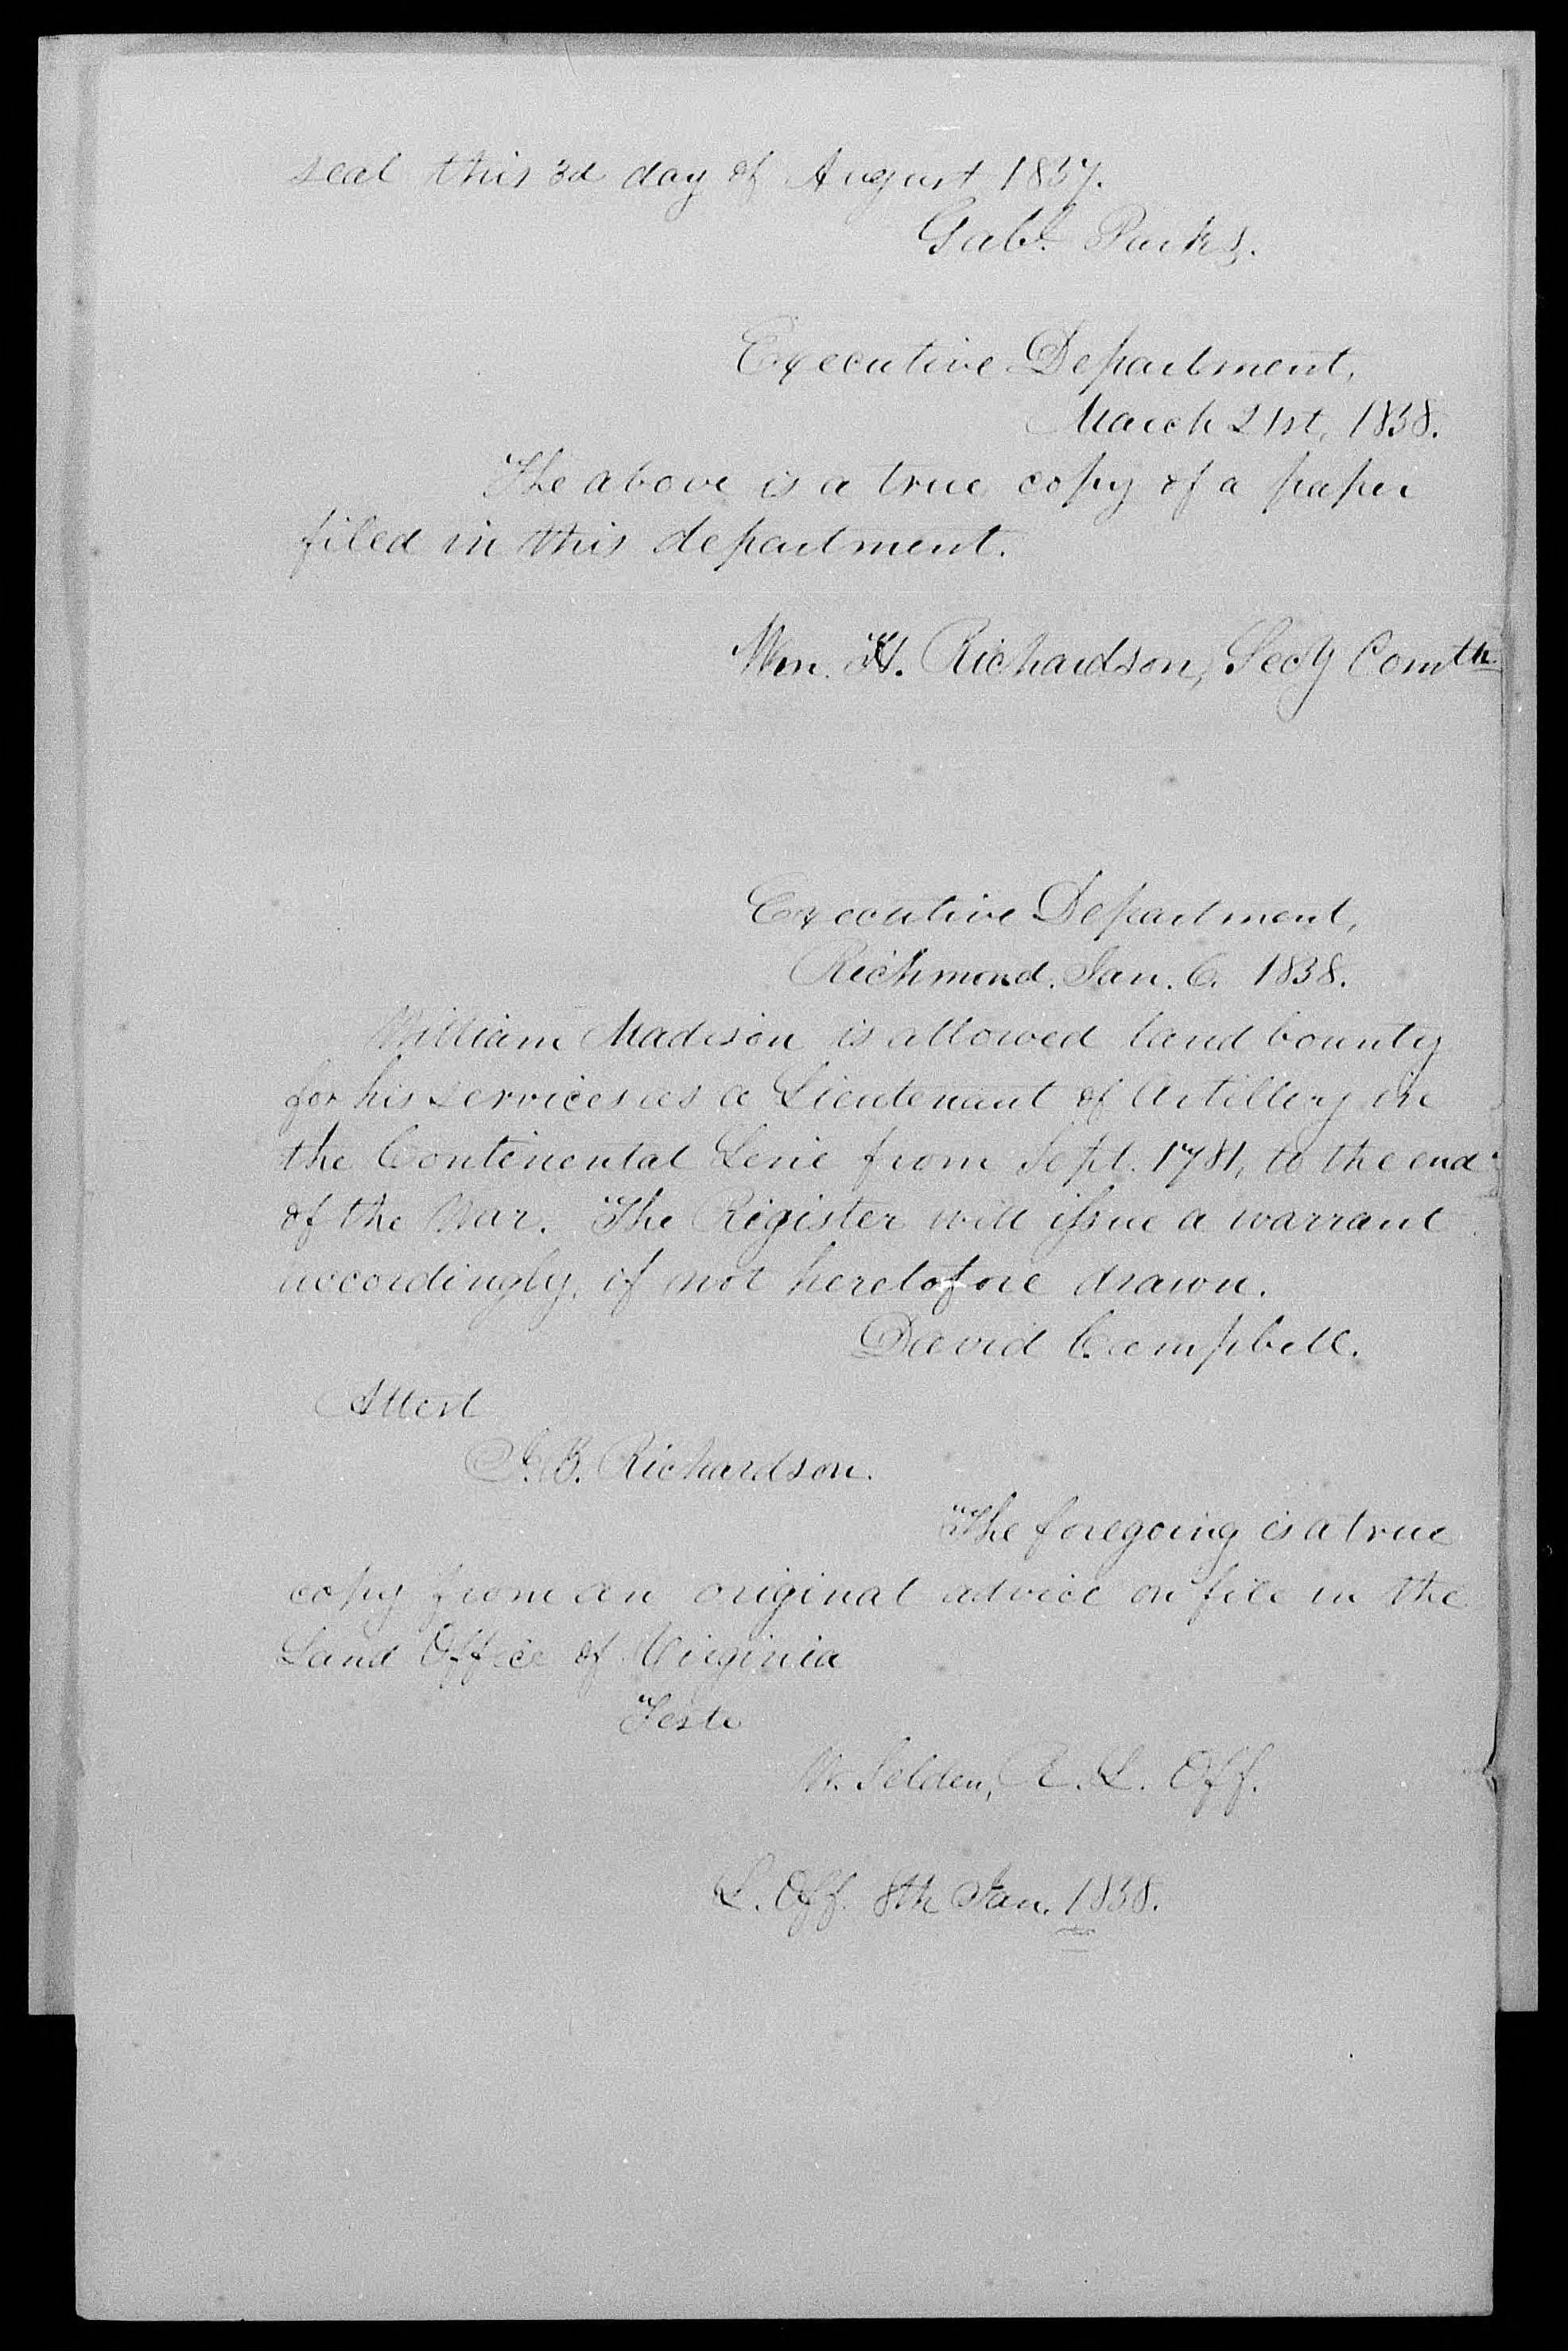 seal this 3d day of August 1837.
Gabl. Parks.
Executive Department,
March 21st, 1838.
The above is a true copy of a paper
filed in this department.
Wm. H. Richardson, Secy Comth
Executive Department,
Richmond. Jan. 6. 1838.
William Madison is allowed land bounty
for his services as a Lieutenant of Artillery in
the Continental Line from Sept. 1781, to the end
of the War. The Register will issue a warrant
accordingly, if not heretofore drawn.
David Campbell.
Attest
J. B. Richardson.
The foregoing is a true
copy from an original advice on file in the
Land Office of Virginia
Teste
W. Selden, R. L. Off.
L. Off. 8th Jan. 1838.